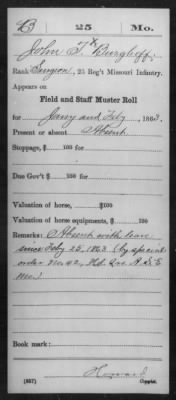 B 25 Mo.
John T. Burghoff
Rank Surgeon, 25 Reg't Missouri Infantry.
Appears on
Field and Staff Muster Roll
for Jany and Feby, 1863.
Present or absent Absent
Stoppage, $ 100 for
Due Gov't $ 100 for
Valuation of horse, $ 100
Valuation of horse equipments, $ 100
Remarks: Absent with leave
since Feby 25, 1863 (by special
order No. 42, Hd. Qrs. A. S. E.
Mo.)
Book mark:
(857) Howard
Copyist.